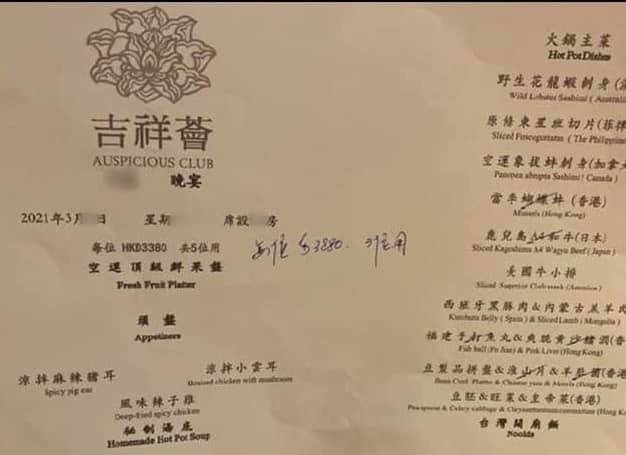 吉祥薈
AUSPICIOUS CLUB
晚宴
2021年3月 日 星期 席設 房
每位 HKD3380 共5位用
每位 $3880. 位用
空運頂級鮮果盤
Fresh Fruit Platter
頭盤
Appetizers
涼拌麻辣豬耳
Spicy pig ear
涼拌小雲耳
chicken with mushroom
風味辣子雞
Deep-fried spicy chicken
秘制湯底
Homemade Hot Pot Soup
火鍋主菜
Hot Pot Dishes
野生花龍蝦刺身(
Wild Lobster Sashimi ( Australi
原條東星斑切片(菲律
Sliced Fuscoguttatus ( The Philippine
空運象拔蚌刺身(加拿
Panopea abrupta Sashimi ( Canada )
當季蝴蝶蚌 (香港)
Mussels (Hong Kong)
鹿兒島A4和牛(日本)
Sliced Kagoshima A4 Wagyu Beef ( Japan )
美國牛小排
Sliced Superior (America )
西班牙黑豚肉&內蒙古羔羊肉
Kurobuta Belly ( Spain ) & Sliced Lamb ( Mongolia )
福建手打魚丸&爽脆黄沙膶(香
Fish ball (Fu Jian) & Pork Liver (Hong Kong)
豆製品拼盤&淮山片&羊肚菌(香港)
Bean Curd Platter & Chinese yam & Morels (Hong Kong)
豆胚&旺菜&皇帝菜(香港)
Peasprout & Celery cabbage & Chrysanthemum coronarium (Hong Ko
台灣關廟麵
Noodle